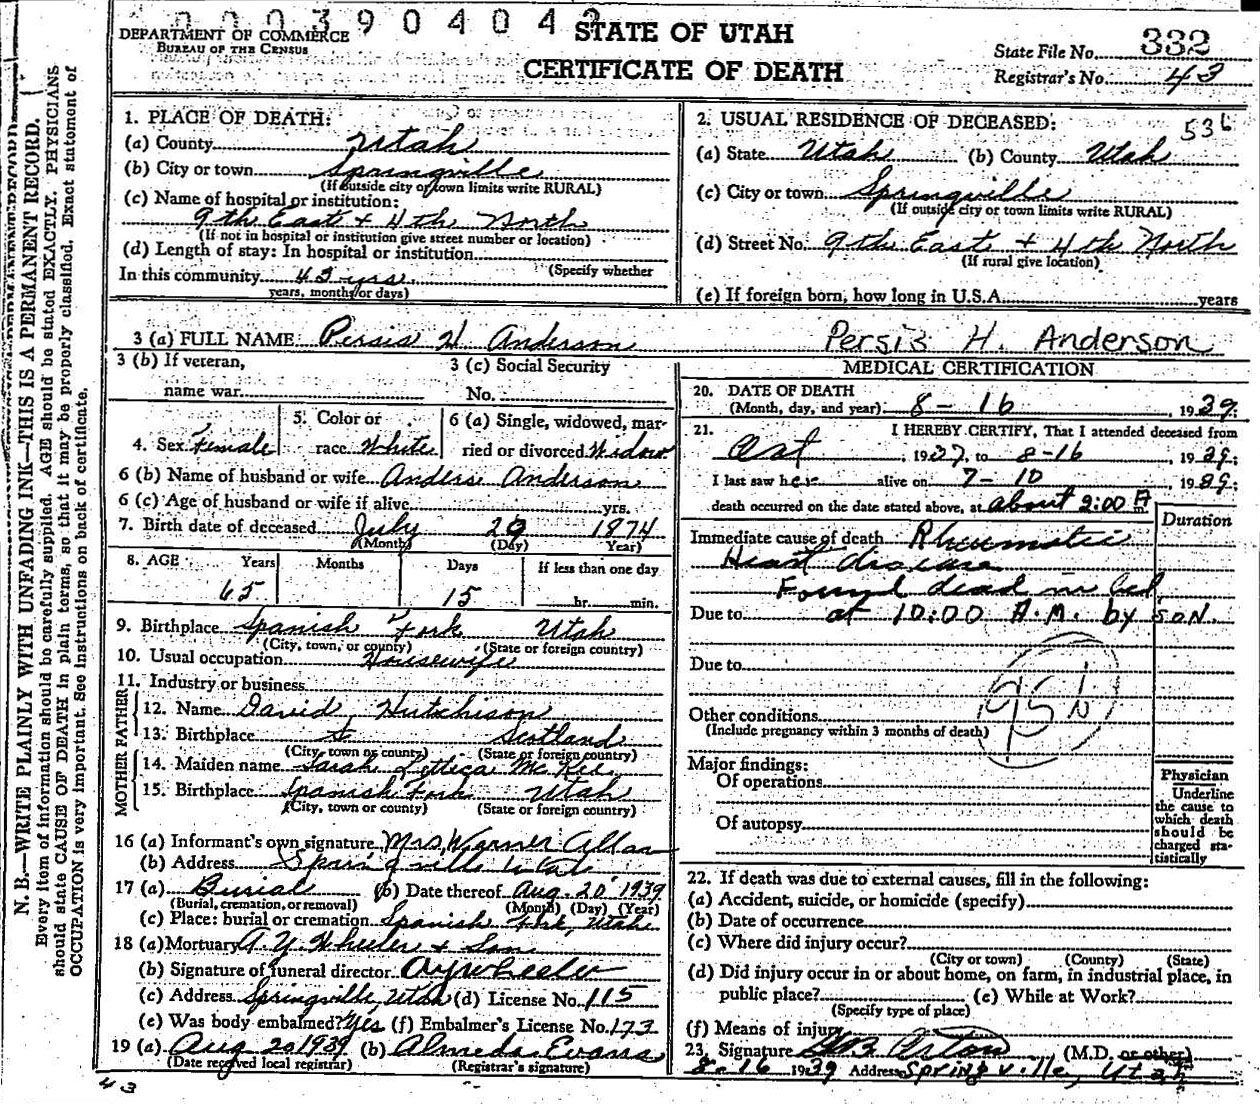 0003904042
DEPARTMENT OF COMMERCE
BUREAU OF THE CENSUS
STATE OF UTAH
CERTIFICATE OF DEATH
State File No. 332
Registrar's No. 43
N. B.—WRITE PLAINLY WITH UNFADING INK—THIS IS A PERMANENT RECORD.
Every item of information should be carefully supplied. AGE should be stated EXACTLY. PHYSICIANS
should state CAUSE OF DEATH in plain terms, so that it may be properly classified. Exact statement of
OCCUPATION is very important. See instructions on back of certificate.
1. PLACE OF DEATH:
(a) County Utah
(b) City or town Springville
(If outside city or town limits write RURAL)
(c) Name of hospital or institution:
9th East + 4th North
(If not in hospital or institution give street number or location)
(d) Length of stay: In hospital or institution
(Specify whether
In this community 43 yrs.
years, months or days)
2. USUAL RESIDENCE OF DECEASED: 536
(a) State Utah (b) County Utah
(c) City or town Springville
(If outside city or town limits write RURAL)
(d) Street No. 9th East + 4th North
(If rural give location)
(e) If foreign born, how long in U.S.A. years
3 (a) FULL NAME: Persis H Anderson Persis H. Anderson
3 (b) If veteran,
name war
3 (c) Social Security
No.
4. Sex Female
5. Color or
race White
6 (a) Single, widowed, mar-
ried or divorced Widow
6 (b) Name of husband or wife Anders Anderson
6 (c) Age of husband or wife if alive yrs.
7. Birth date of deceased July 29 1874
(Month) (Day) Year)
8. AGE Years Months Days If less than one day
65 15 hr. min.
9. Birthplace Spanish Fork Utah
(City, town, or county) (State or foreign country)
10. Usual occupation Housewife
11. Industry or business
FATHER
12. Name David Hutchison
13. Birthplace Scotland
(City, town or county) (State or foreign country)
MOTHER
14. Maiden name Sarah Lettica McKee
15. Birthplace Spanish Fork Utah
(City, town or county) (State or foreign country)
16 (a) Informant's own signature Mrs. Warner Allan
(b) Address Springville Utah
17 (a) Burial (b) Date thereof Aug. 20 1939
(Burial, cremation, or removal) (Month) (Day) (Year)
(c) Place: burial or cremation Spanish Fork, Utah
18 (a) Mortuary A. Y. Wheeler + Son
(b) Signature of funeral director A Y Wheeler
(c) Address Springville, Utah (d) License No. 115
(e) Was body embalmed? Yes (f) Embalmer's License No. 173
19 (a) Aug 20 1939 (b) Almeda Evans
(Date received local registrar) (Registrar's signature)
43
MEDICAL CERTIFICATION
20. DATE OF DEATH
(Month, day, and year) 8-16, 1939.
21. I HEREBY CERTIFY, That I attended deceased from
Oct, 1937, to 8-16 1939.
I last saw her alive on 7-10 1939.
death occurred on the date stated above, at about 2:00 A m.
Duration
Immediate cause of death Rheumatic
Heart disease
Found dead in bed
Due to at 10:00 A.M. by son.
Due to
95b
Other conditions
(Include pregnancy within 3 months of death)
Major findings:
Of operations
Of autopsy
Physician
Underline
the cause to
which death
should be
charged sta-
tistically
22. If death was due to external causes, fill in the following:
(a) Accident, suicide, or homicide (specify)
(b) Date of occurrence
(c) Where did injury occur?
(City or town) (County) (State)
(d) Did injury occur in or about home, on farm, in industrial place, in
public place? (e) While at Work?
(Specify type of place)
(f) Means of injury
23. Signature Orton (M.D. or other)
8-16 1939 Address Springville, Utah